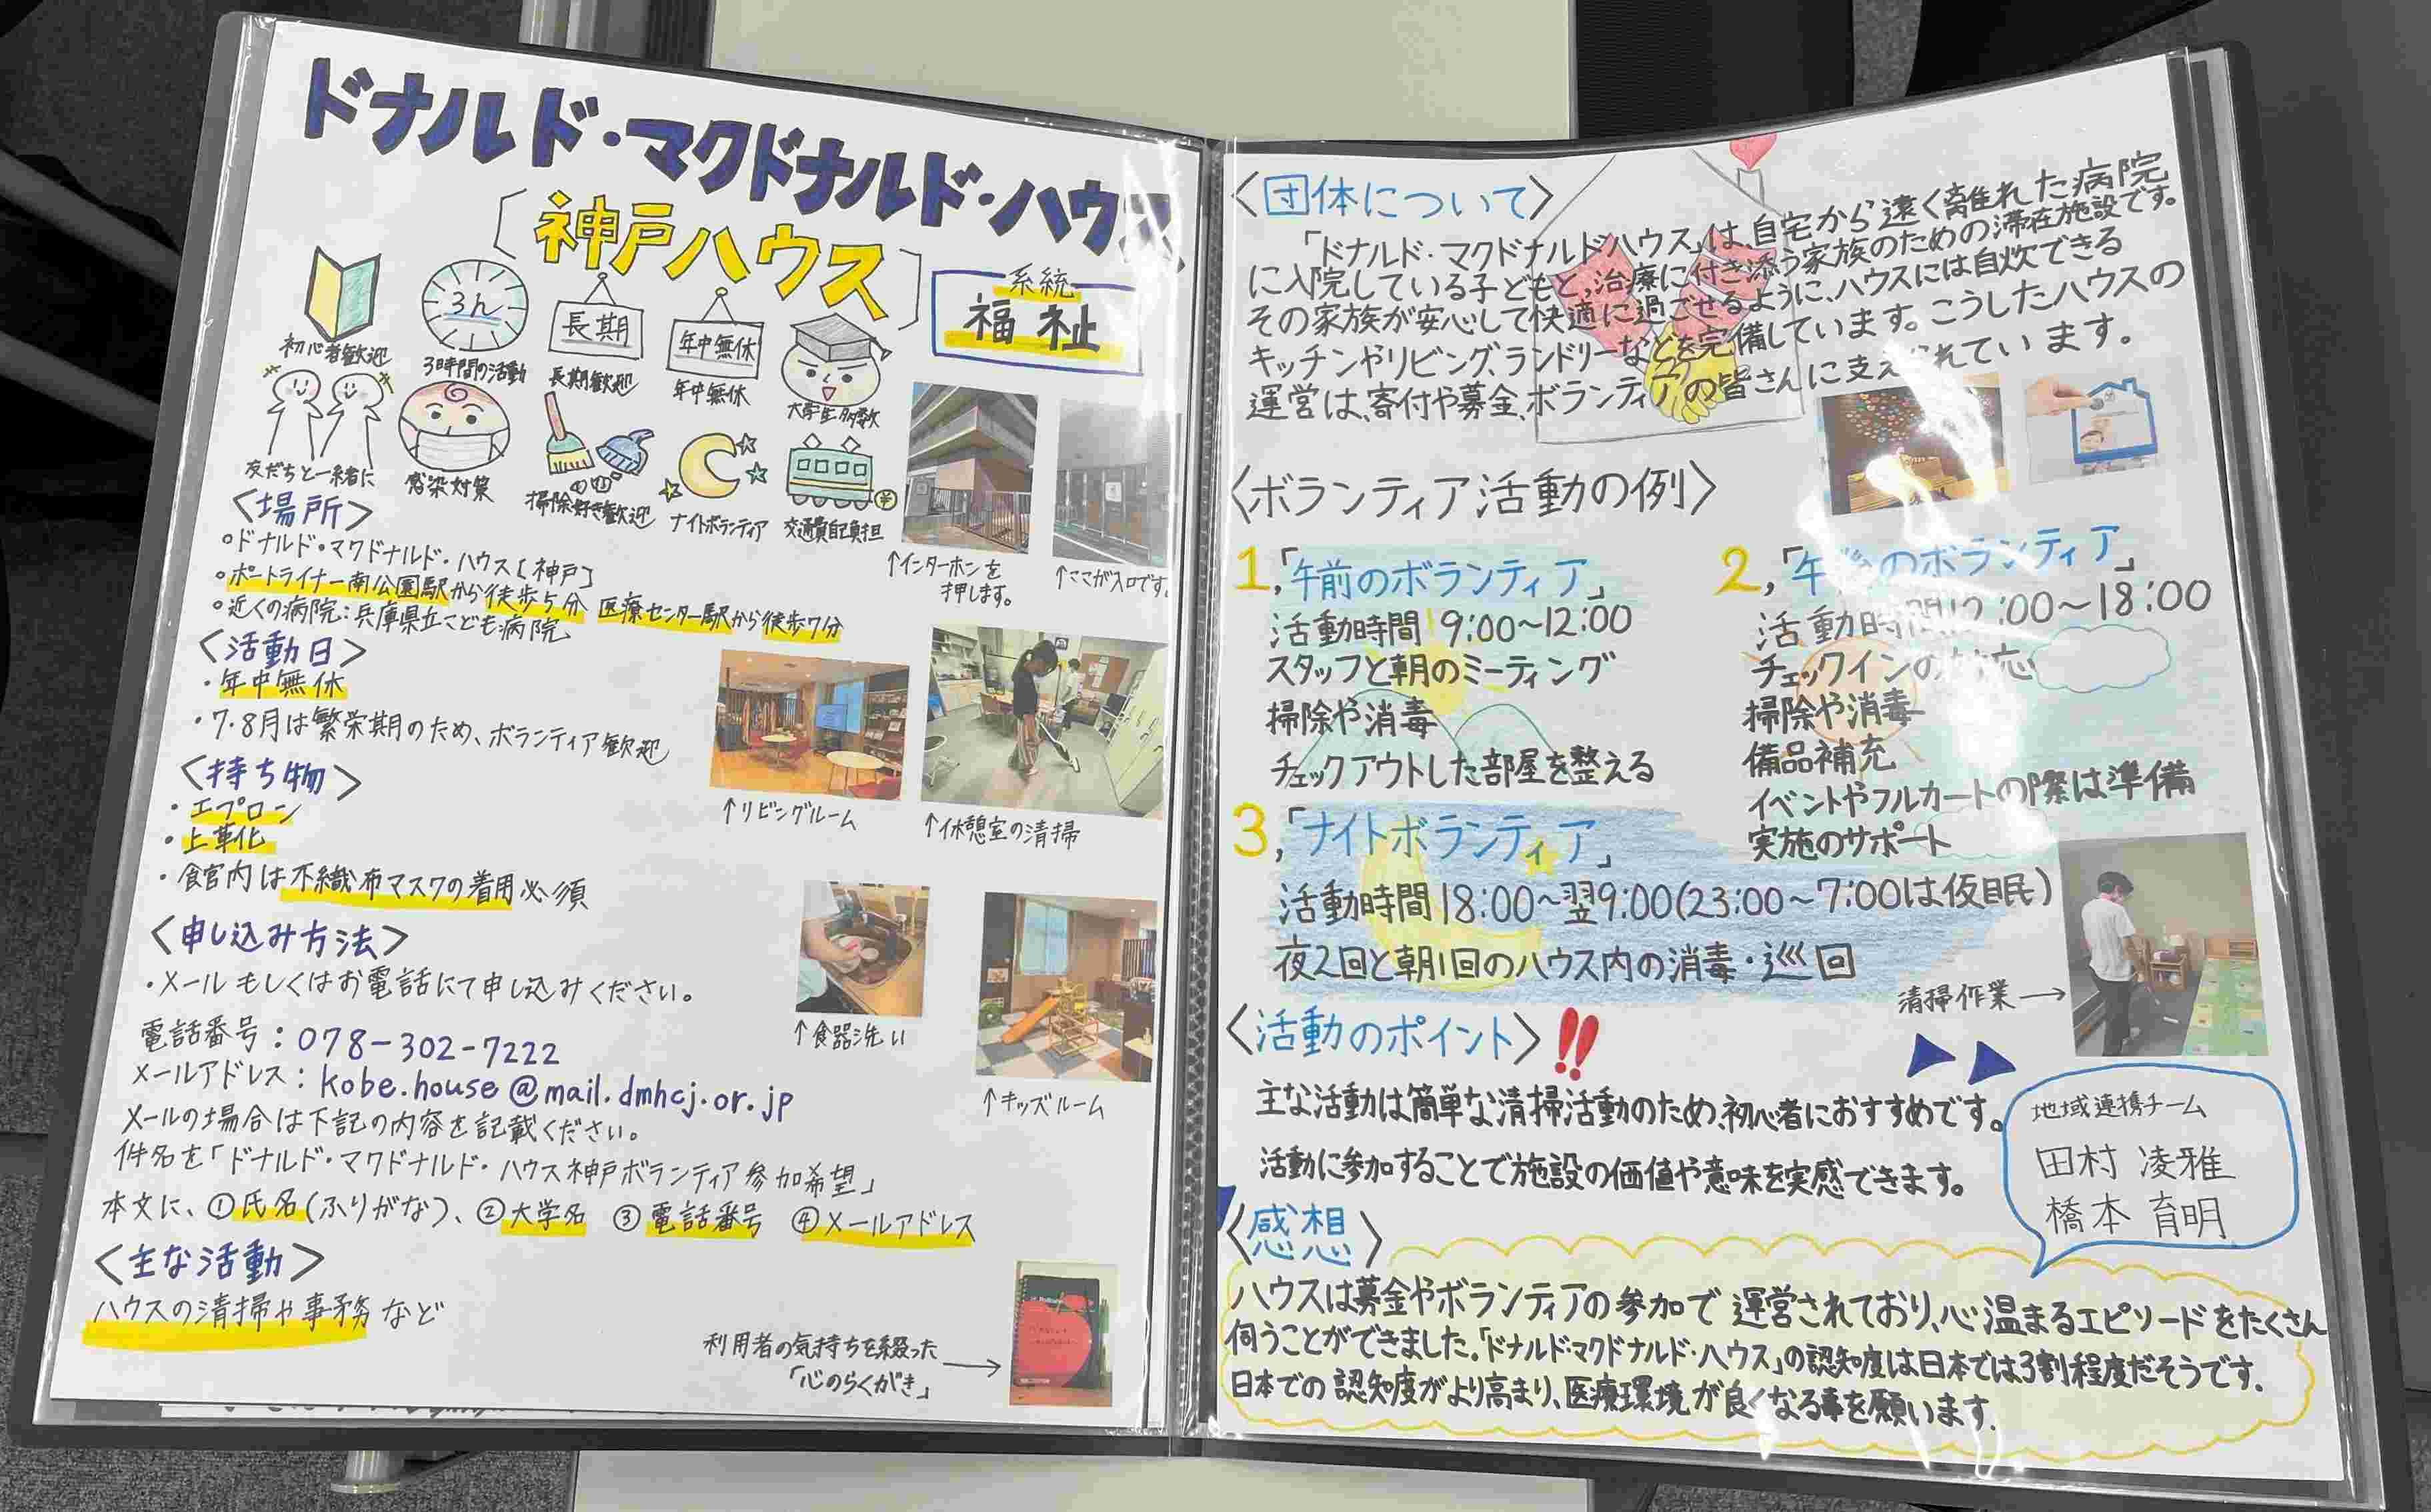 ドナルド・マクドナルド・ハウス
[神戸ハウス]
系統
福祉
3h
長期
年中無休
初心者歓迎
3時間の活動
長期歓迎
年中無休
大学生多数
友だちと一緒に
感染対策
掃除好き歓迎
ナイトボランティア
交通費自己負担
<場所>
・ドナルド・マクドナルド・ハウス[神戸]
・ポートライナー南公園駅から徒歩5分 医療センター駅から徒歩7分
・近くの病院:兵庫県立こども病院
↑インターホンを
押します。
↑ここが入口です。
<活動日>
・年中無休
・7・8月は繁栄期のため、ボランティア歓迎
<持ち物>
・エプロン
・上靴
・館内は不織布マスクの着用必須
↑リビングルーム
↑休憩室の清掃
<申し込み方法>
・メールもしくはお電話にて申し込みください。
電話番号:078-302-7222
メールアドレス:kobe.house@mail.dmhcj.or.jp
メールの場合は下記の内容を記載ください。
件名を「ドナルド・マクドナルド・ハウス神戸ボランティア参加希望」
本文に、①氏名(ふりがな)、②大学名 ③電話番号 ④メールアドレス
↑食器洗い
↑キッズルーム
<主な活動>
ハウスの清掃や事務など
利用者の気持ちを綴った
「心のらくがき」→
<団体について>
「ドナルド・マクドナルドハウス」は、自宅から遠く離れた病院
に入院している子どもと、治療に付き添う家族のための滞在施設です。
その家族が安心して快適に過ごせるように、ハウスには自炊できる
キッチンやリビング、ランドリーなどを完備しています。こうしたハウスの
運営は、寄付や募金、ボランティアの皆さんに支えられています。
<ボランティア活動の例>
1,「午前のボランティア」
活動時間 9:00~12:00
スタッフと朝のミーティング
掃除や消毒
チェックアウトした部屋を整える
2,「午後のボランティア」
活動時間12:00~18:00
チェックインの対応
掃除や消毒
備品補充
イベントやフルカートの際は準備
実施のサポート
3,「ナイトボランティア」
活動時間18:00~翌9:00(23:00~7:00は仮眠)
夜2回と朝1回のハウス内の消毒・巡回
清掃作業→
<活動のポイント>!!
主な活動は簡単な清掃活動のため、初心者におすすめです。
活動に参加することで施設の価値や意味を実感できます。
地域連携チーム
田村 凌雅
橋本 育明
<感想>
ハウスは募金やボランティアの参加で運営されており、心温まるエピソードをたくさん
伺うことができました。「ドナルド・マクドナルド・ハウス」の認知度は日本では3割程度だそうです。
日本での認知度がより高まり、医療環境が良くなる事を願います。